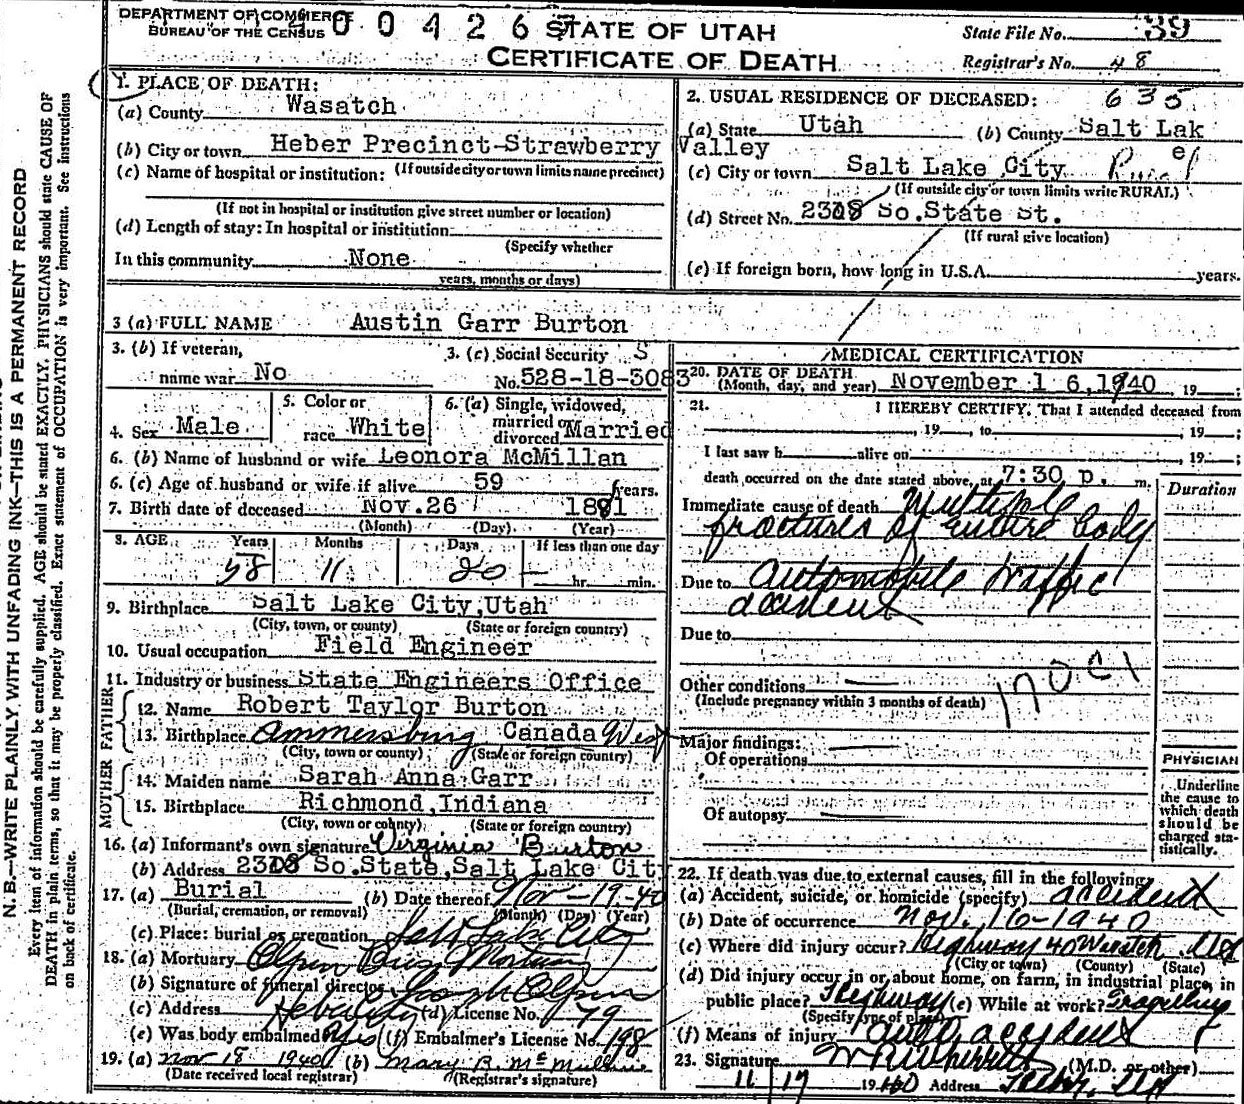 DEPARTMENT OF COMMERCE
BUREAU OF THE CENSUS
0 0 4 2 6
STATE OF UTAH
CERTIFICATE OF DEATH
State File No. 39
Registrar's No. 48
N. B.—WRITE PLAINLY WITH UNFADING INK—THIS IS A PERMANENT RECORD
Every item of information should be carefully supplied. AGE should be stated EXACTLY. PHYSICIANS should state CAUSE OF
DEATH in plain terms, so that it may be properly classified. Exact statement of OCCUPATION is very important. See instructions
on back of certificate.
1. PLACE OF DEATH:
(a) County Wasatch
(b) City or town Heber Precinct-Strawberry Valley
(c) Name of hospital or institution: (If outside city or town limits name precinct)
(If not in hospital or institution give street number or location)
(d) Length of stay: In hospital or institution
(Specify whether
In this community None
years, months or days)
2. USUAL RESIDENCE OF DECEASED: 635
(a) State Utah (b) County Salt Lake
(c) City or town Salt Lake City Rural
(If outside city or town limits write RURAL)
(d) Street No. So.State St.
(If rural give location)
(e) If foreign born, how long in U.S.A. years.
3 (a) FULL NAME Austin Garr Burton
3. (b) If veteran,
name war No
3. (c) Social Security S
No. 528-18-3083
4. Sex Male
5. Color or
race White
6. (a) Single, widowed,
married or
divorced Married
6. (b) Name of husband or wife Leonora McMillan
6. (c) Age of husband or wife if alive 59 years.
7. Birth date of deceased Nov.26 1881
(Month) (Day) (Year)
8. AGE Years Months Days If less than one day
58 11 20 hr. min.
9. Birthplace Salt Lake City,Utah
(City, town, or county) (State or foreign country)
10. Usual occupation Field Engineer
11. Industry or business State Engineers Office
FATHER
12. Name Robert Taylor Burton
13. Birthplace Ammersburg Canada West
(City, town or county) (State or foreign country)
MOTHER
14. Maiden name Sarah Anna Garr
15. Birthplace Richmond,Indiana
(City, town or county) (State or foreign country)
16. (a) Informant's own signature Virginia Burton
(b) Address So.State,Salt Lake Cit
17. (a) Burial (b) Date thereof Nov-19-40
(Burial, cremation, or removal) (Month) (Day) (Year)
(c) Place: burial or cremation Salt Lake City
18. (a) Mortuary Olpin Bros Mortuary
(b) Signature of funeral director Joseph Olpin
(c) Address Heber City (d) License No. 79
(e) Was body embalmed Yes (f) Embalmer's License No. 198
19. (a) Nov 18 1940 (b) Mary B. McMullin
(Date received local registrar) (Registrar's signature)
MEDICAL CERTIFICATION
20. DATE OF DEATH
(Month, day, and year) November 1 6,1940 19 ;
21. I HEREBY CERTIFY, That I attended deceased from
, 19 , to , 19 ;
I last saw h alive on , 19 ;
death occurred on the date stated above, at 7:30 p. m.
Duration
Immediate cause of death Multiple
fractures of entire body
Due to automobile traffic
accident
Due to
170c1
Other conditions
(Include pregnancy within 3 months of death)
Major findings:
Of operations
Of autopsy
PHYSICIAN
Underline
the cause to
which death
should be
charged sta-
tistically.
22. If death was due to external causes, fill in the following:
(a) Accident, suicide, or homicide (specify) accident
(b) Date of occurrence Nov. 16-1940
(c) Where did injury occur? Highway 40 Wasatch Utah
(City or town) (County) (State)
(d) Did injury occur in or about home, on farm, in industrial place, in
public place? Highway (e) While at work? Traveling
(Specify type of place)
(f) Means of injury auto accident
23. Signature (M.D. or other)
11/17 1940 Address Heber, Utah